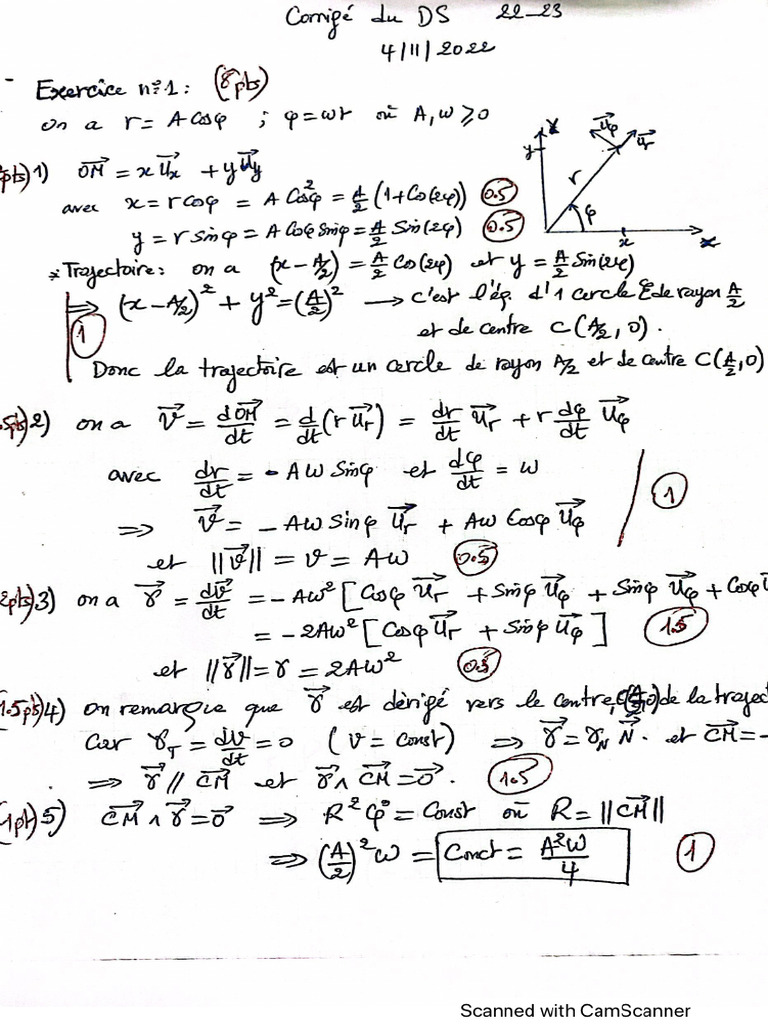 Corrigé du DS 22_23
4/11/2022
Exercice n°1: (8pts)
on a r = A Cosφ ; φ = ωt où A, ω ⩾ 0
y Y u⃗φ u⃗r
r φ
x X
pts) 1) OM⃗ = x u⃗x + y u⃗y
avec x = r cosφ = A Cos²φ = A/2 (1+Cos(2φ)) 0.5
y = r sinφ = A Cosφ Sinφ = A/2 Sin(2φ) 0.5
* Trajectoire: on a (x - A/2) = A/2 Cos(2φ) et y = A/2 Sin(2φ)
⇒ (x - A/2)² + y² = (A/2)² → c'est l'éq. d'1 cercle de rayon A/2
1 et de centre C(A/2, 0).
Donc la trajectoire est un cercle de rayon A/2 et de centre C(A/2, 0)
.5pts) 2) on a V⃗ = dOM⃗/dt = d/dt (r u⃗r) = dr/dt u⃗r + r dφ/dt u⃗φ
avec dr/dt = - Aω Sinφ et dφ/dt = ω
1
⇒ V⃗ = - Aω Sinφ u⃗r + Aω Cosφ u⃗φ
et ||v⃗|| = v = Aω 0.5
2pts) 3) on a γ⃗ = dv⃗/dt = - Aω² [Cosφ u⃗r + Sinφ u⃗φ + Sinφ u⃗φ + Cosφ u
= - 2Aω² [Cosφ u⃗r + Sinφ u⃗φ] 1.5
et ||γ⃗|| = γ = 2Aω² 0.5
1.5pt) 4) on remarque que γ⃗ est dérigé vers le centre C(A/2,0) de la traject
Car γT = dv/dt = 0 (v = const) ⇒ γ⃗ = γN N⃗. et CM⃗ = -
⇒ γ⃗ // CM⃗ et γ⃗ ∧ CM⃗ = 0⃗. 1.5
(1pt) 5) CM⃗ ∧ γ⃗ = 0⃗ ⇒ R² φ° = Const où R = ||CM⃗||
⇒ (A/2)² ω = Conct = A²ω/4 1
Scanned with CamScanner